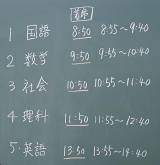 着席
1 国語 8:50 8:55~9:40
2 数学 9:50 9:55~10:40
3 社会 10:50 10:55~11:40
4 理科 11:50 11:55~12:40
5 英語 13:50 13:55~14:40